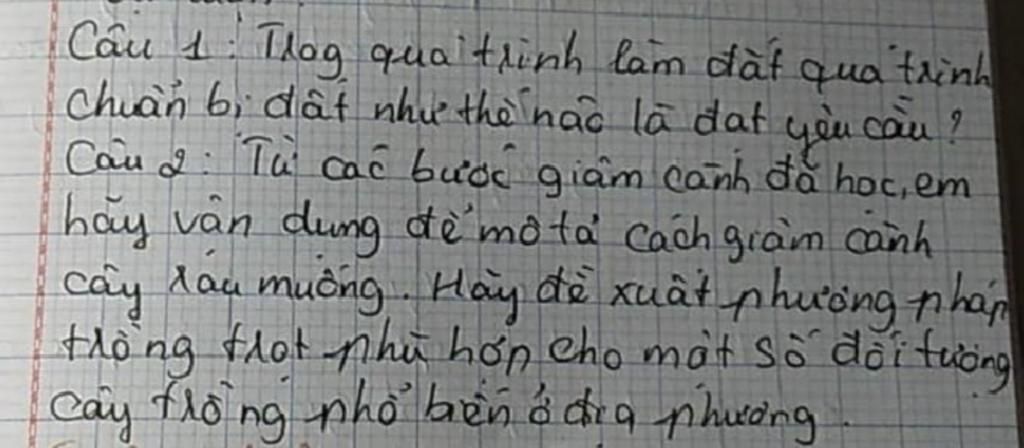 Câu 1: Trog quá trình làm đất quá trình
chuẩn bị đất như thế nào là đạt yêu cầu?
Câu 2: Từ các bước giâm cành đã học, em
hãy vận dụng để mô tả cách giâm cành
cây rau muống. Hãy đề xuất phương pháp
trồng trọt phù hợp cho một số đối tượng
cây trồng phổ biến ở địa phương.